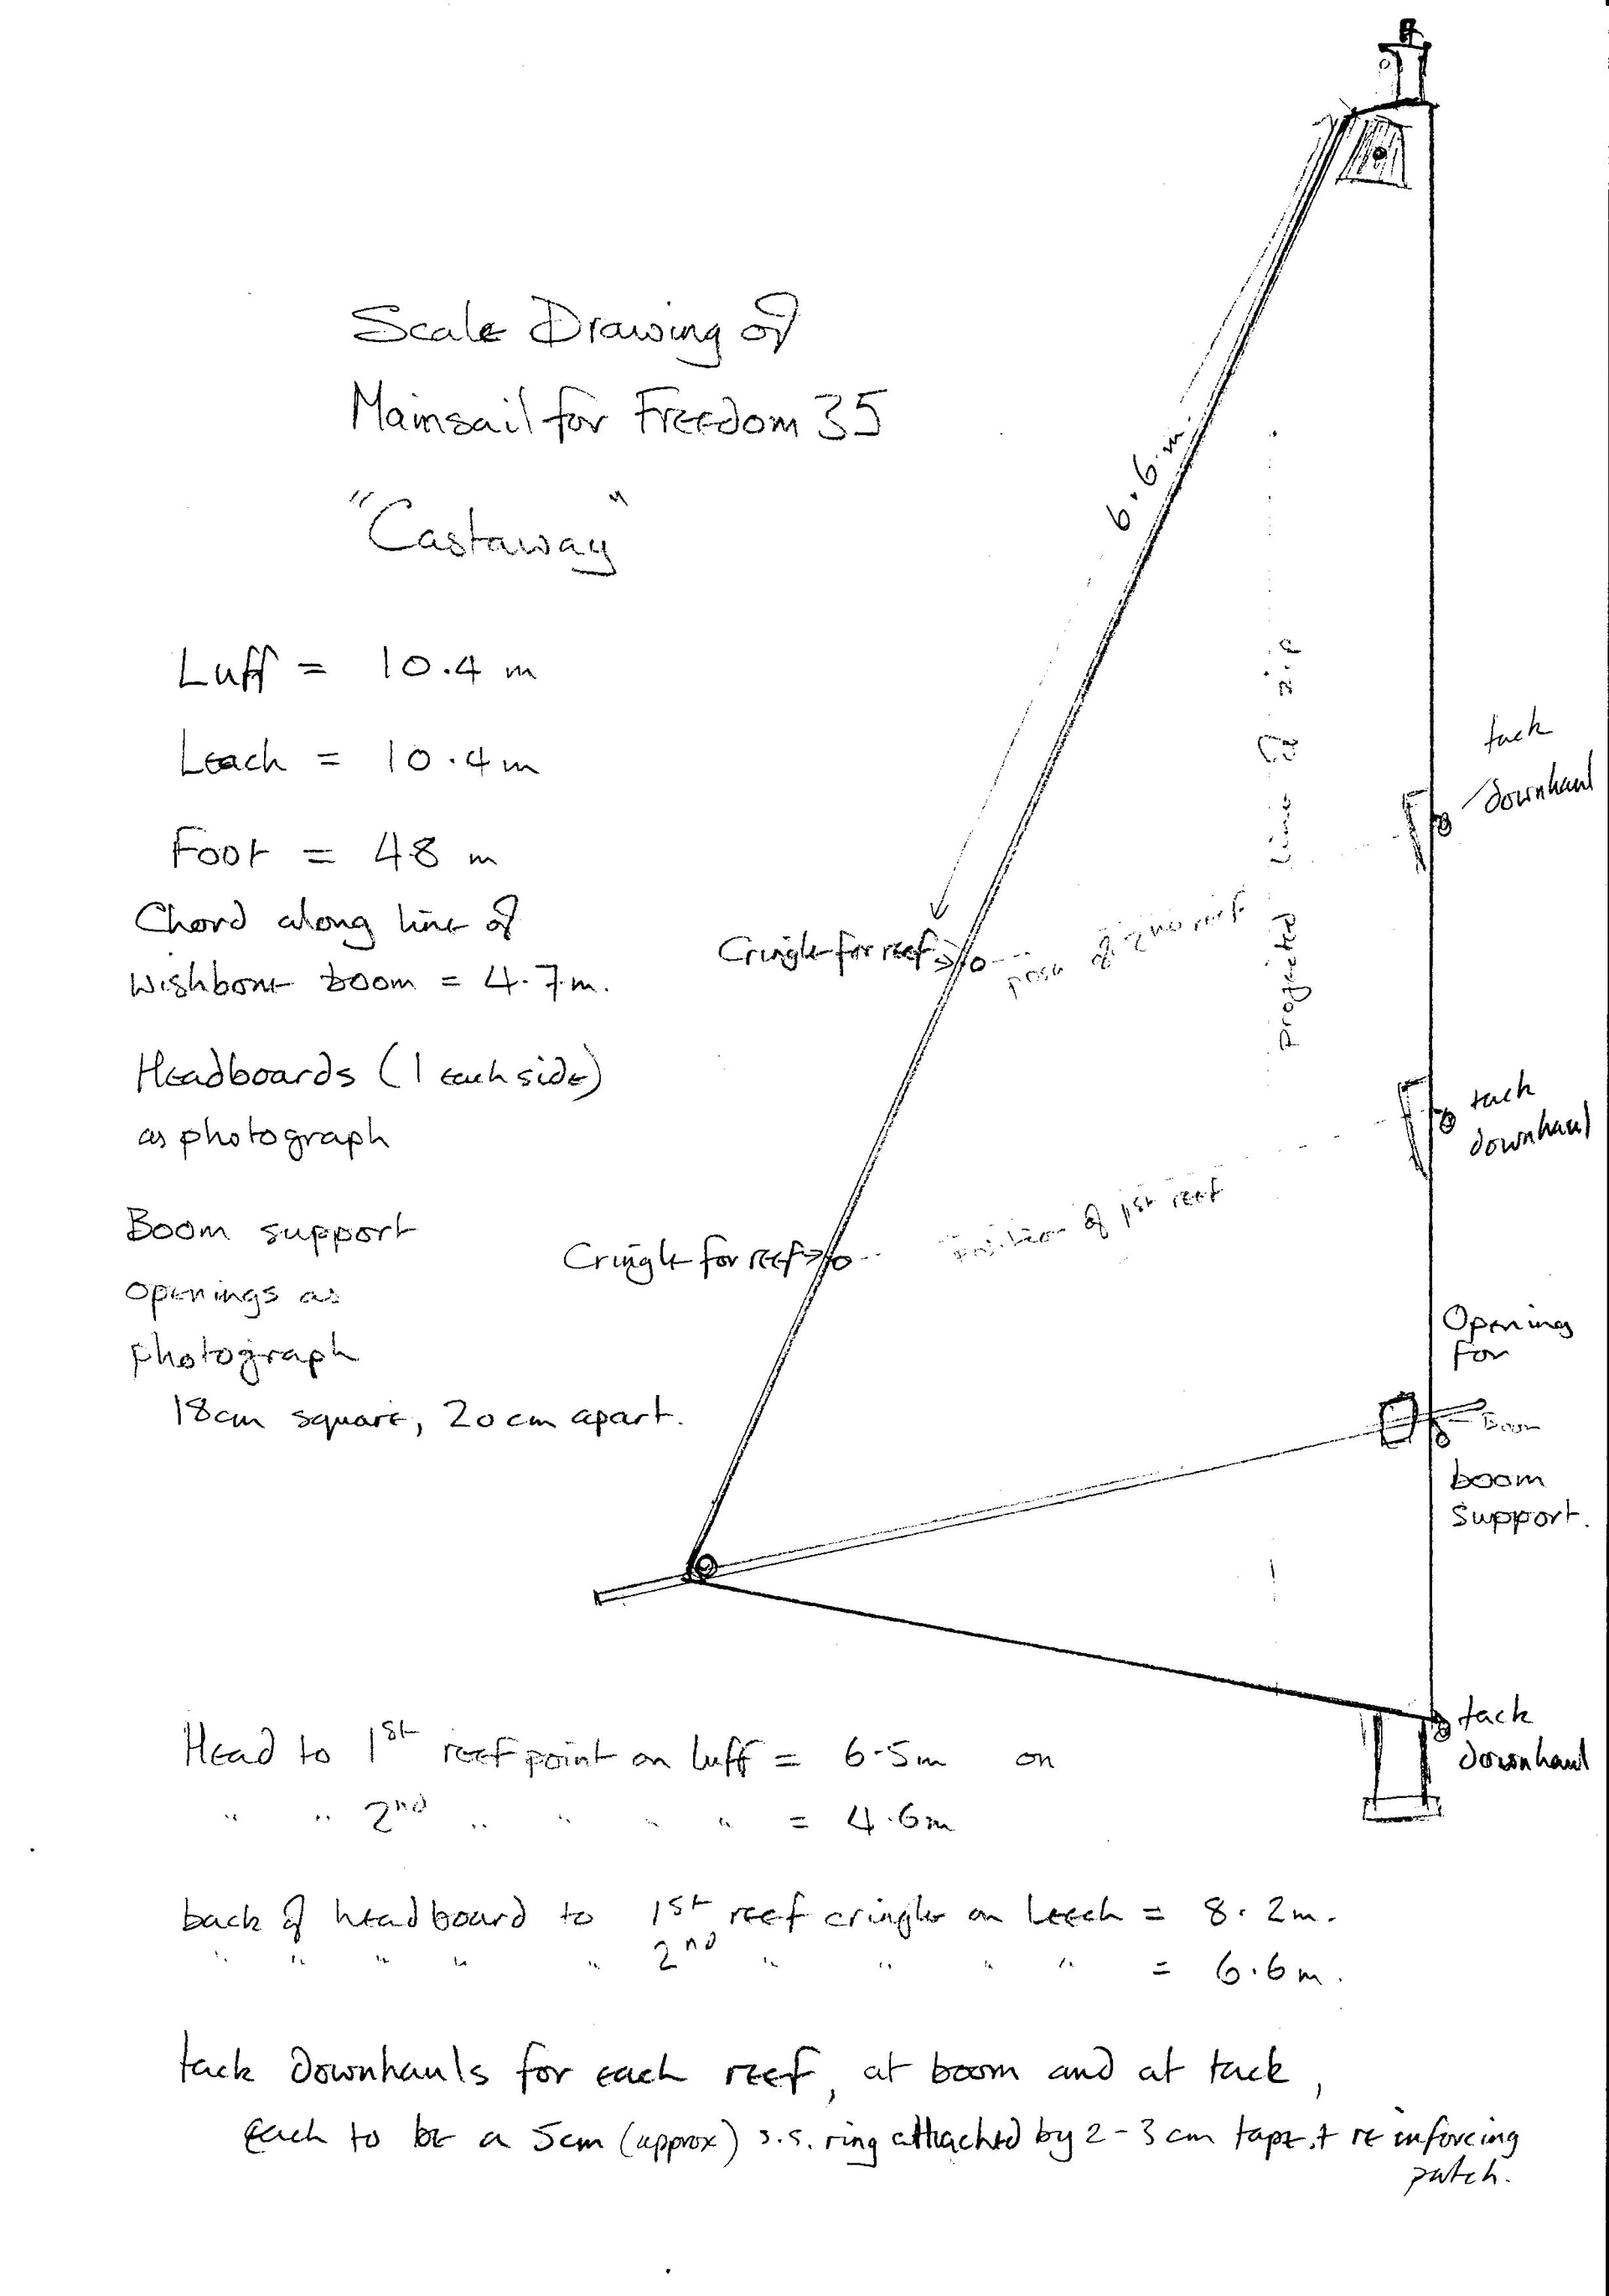 Scale Drawing of
Mainsail for Freedom 35
"Castaway"
Luff = 10.4 m
Leach = 10.4 m
Foot = 48 m
Chord along line of
Wishbone boom = 4.7 m.
Headboards (1 each side)
as photograph
Boom support
openings as
photograph
18cm square, 20cm apart.
6.6 m.
projected line of zip
tack
downhaul
Cringle for reef
posn of 2nd reef
tack
downhaul
Cringle for reef
Position of 1st reef
Opening
for
Boom
boom
support.
tack
downhaul
Head to 1st reef point on luff = 6.5m on
" " 2nd " " " " = 4.6m
back of headboard to 1st reef cringle on leech = 8.2m.
" " " " " 2nd " " " " = 6.6m.
tack downhauls for each reef, at boom and at tack,
Each to be a 5cm (approx) s.s. ring attached by 2-3cm tape + reinforcing
patch.